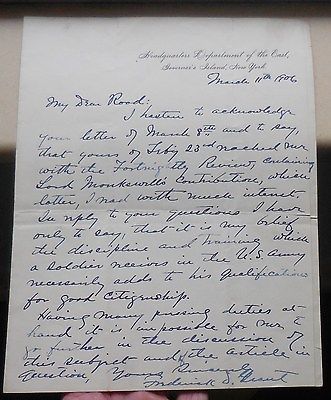 Headquarters Department of the East,
Governor's Island, New York
March 11th 1906
My Dear Rood:
I hasten to acknowledge
your letter of March 8th and to say,
that yours, of Feby 23rd reached me
with the Fortnightly Review, containing
Lord Monkswell's contribution, which
latter, I read with much interest.
In reply to your questions I have
only to say, that it is my belief
the discipline and training which
a soldier receives in the U.S. Army
necessarily adds to his qualifications
for good citizenship.
Having many pressing duties at
hand it is impossible for me to
go further in the discussion of
this subject and of the article in
question, Yours Sincerely
Frederick D. Grant